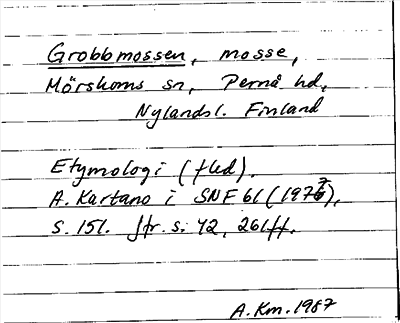 Grobbmossen, mosse,
Mörskoms sn, Pernå hd,
Nylandsl. Finland
Etymologi (fled).
A. Kartano i SNF 61 (1977),
s. 151. Jfr. s. 42, 261ff.
A.Km.1987